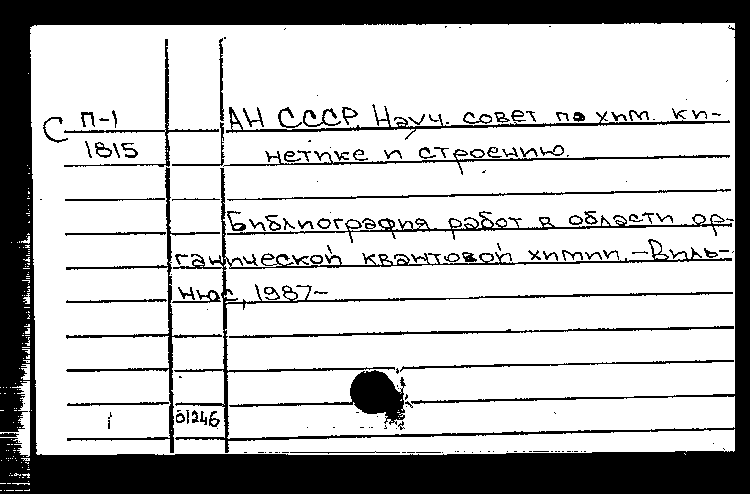 С П-1 АН СССР. Науч. совет по хим. ки-
1815 нетике и строению.
Библиография работ в области ор-
ганической квантовой химии. - Виль-
нюс, 1987-
1 01246